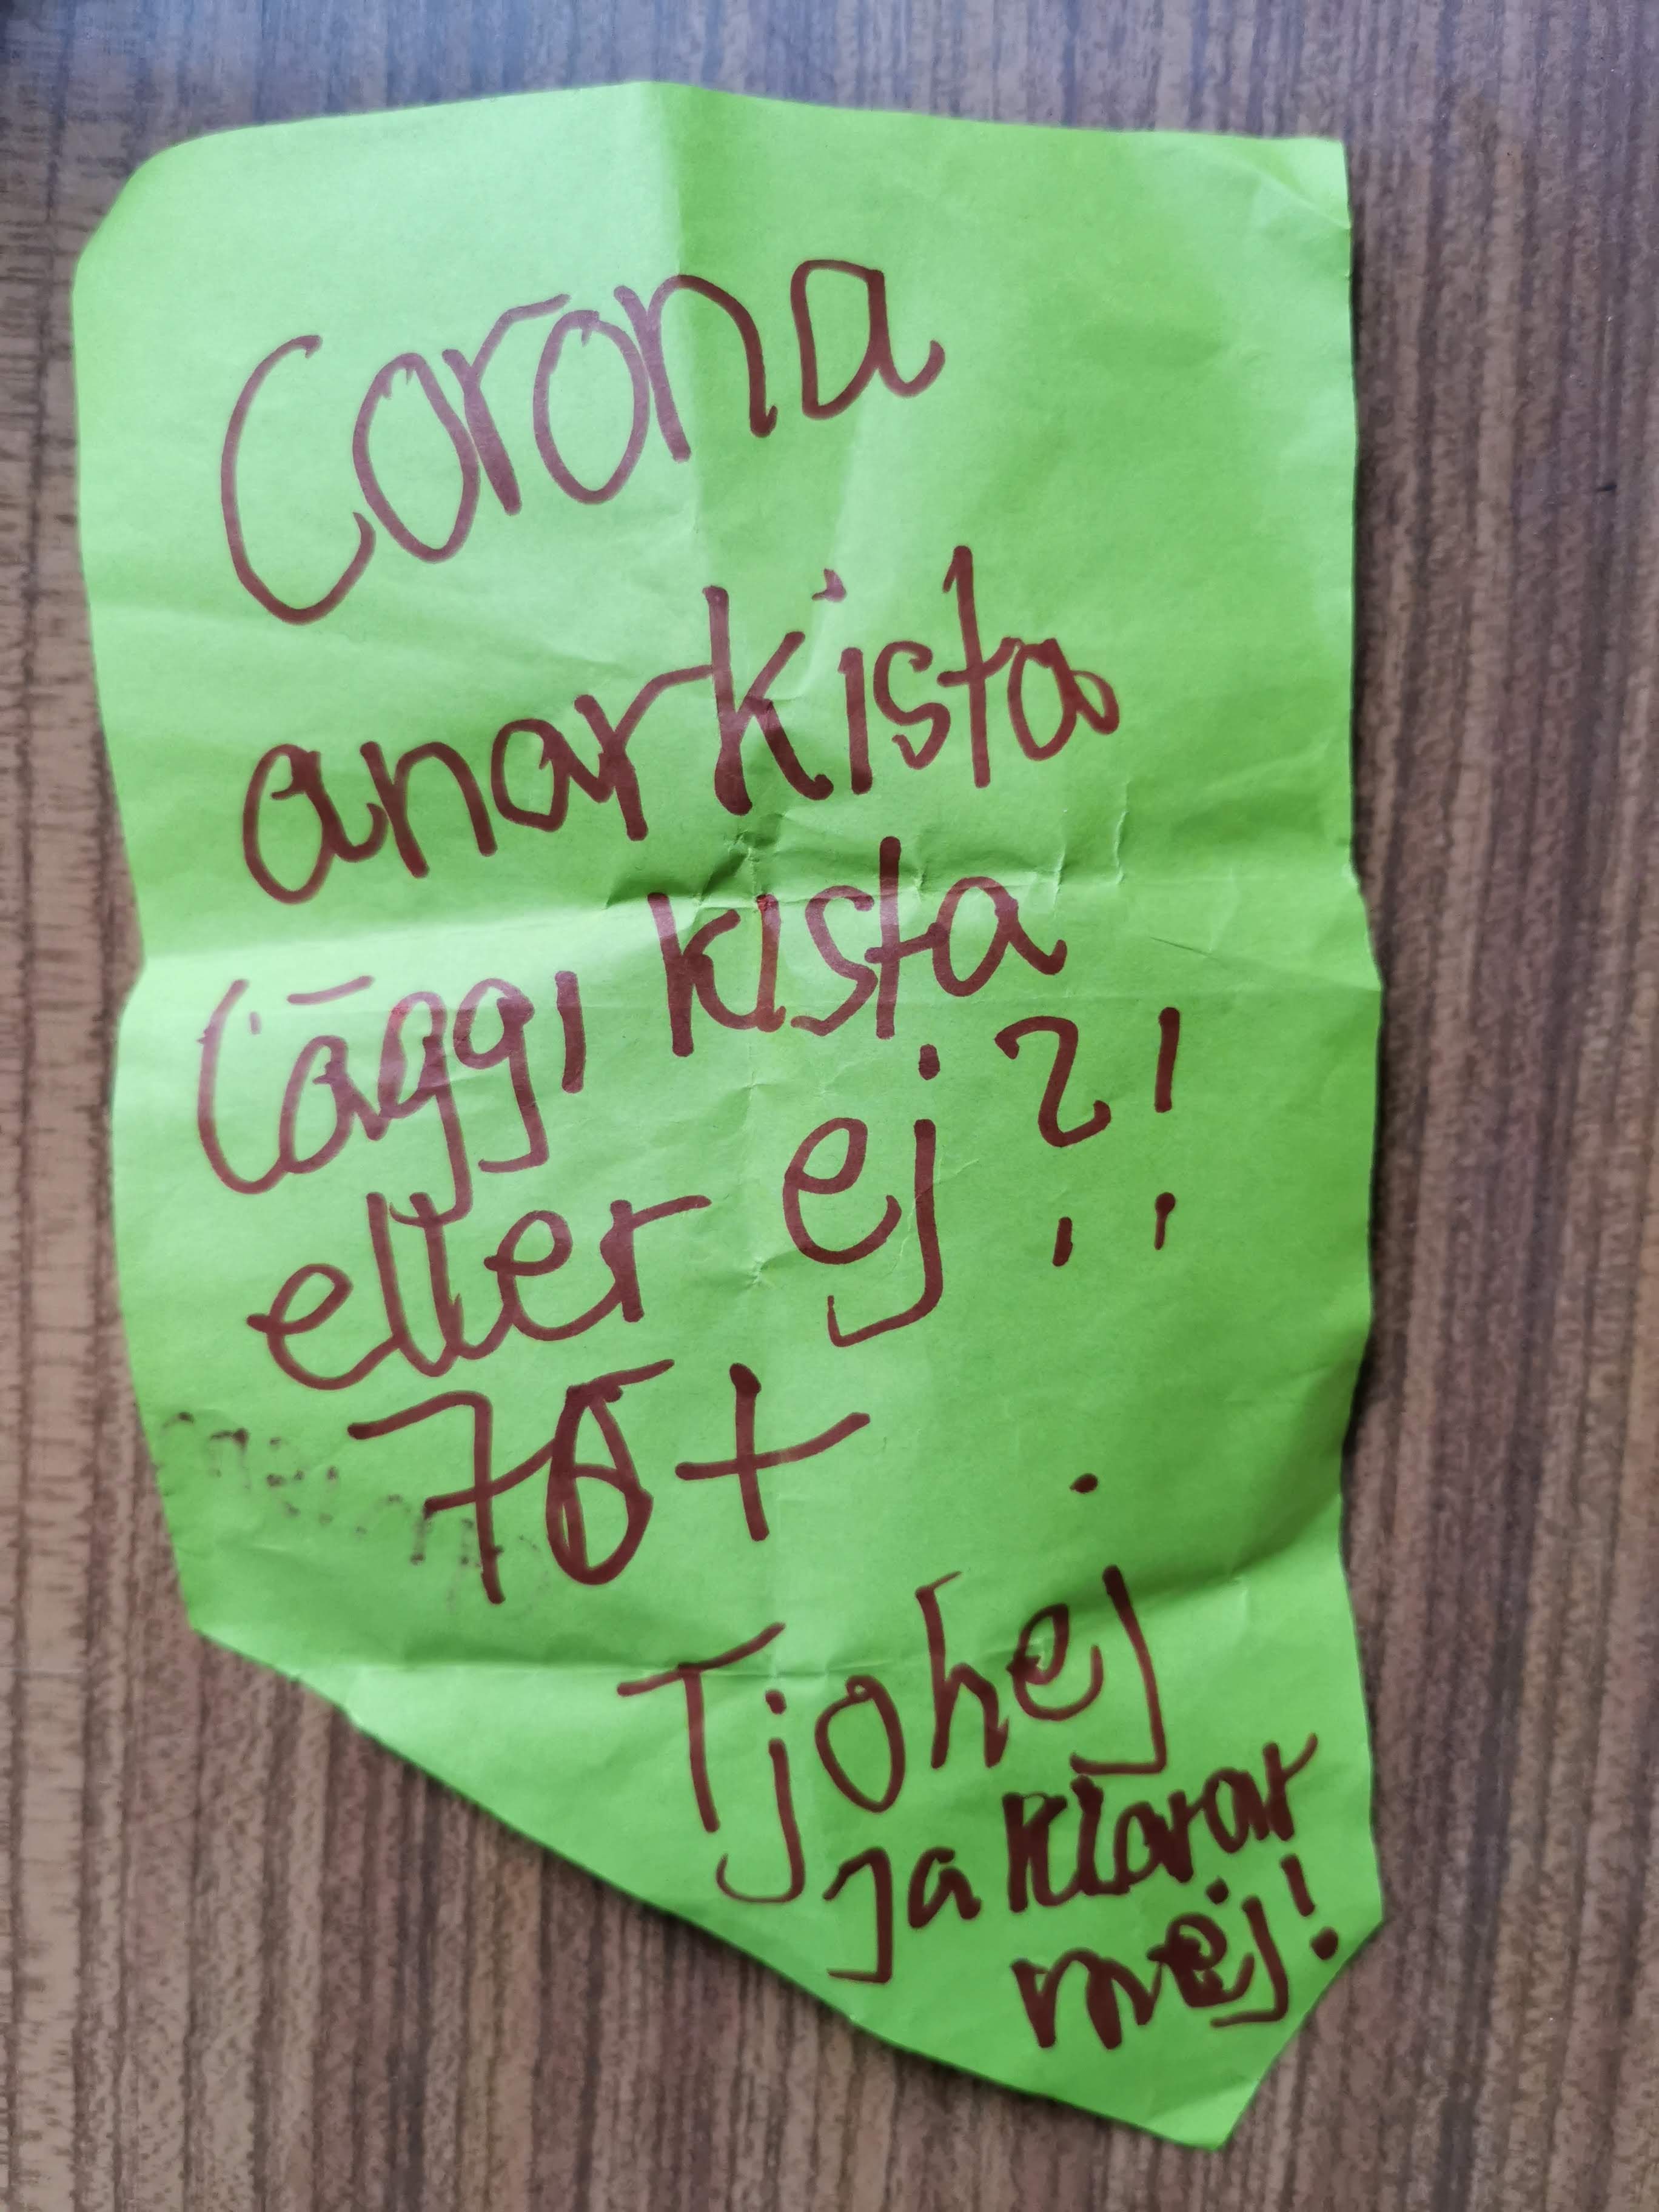 Corona
anarkista
läggi kista
eller ej ?!
70+
Tjohej
ja klarar
mej!